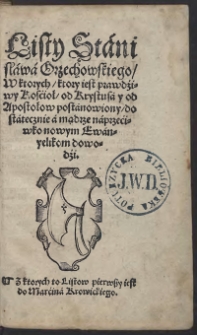 Listy Stáni
sláwa Orzechowskiego/
W ktorych/ ktory iest prawdźi-
wy Kośćioł/ od Krystusa y od
Apostołow postánowiony/ do
státecznie á mądrze náprzeći-
wko nowym Ewán-
yelikom dowo-
dźi.
J.W.D.
¶ Z ktorych to Listow pierwszy iest
do Marćiná Krowickiego.